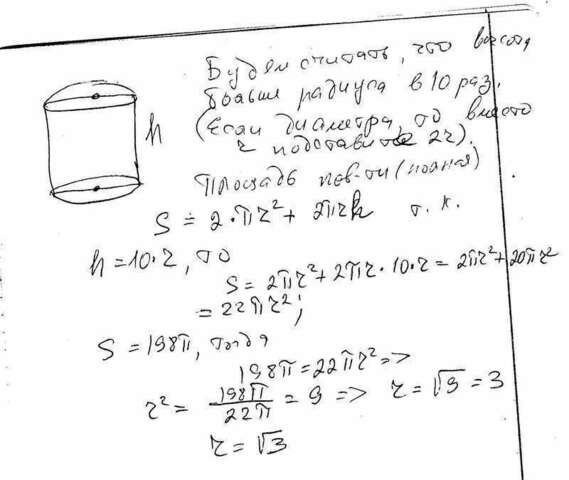 Будем считать, что высота
больше радиуса в 10 раз.
(Если диаметра, то вместо
r подставите 2r).
h
Площадь пов-ти (полная)
S = 2·πr² + 2πrh т. к.
h = 10·r, то
S = 2πr² + 2πr·10·r = 2πr² + 20πr²
= 22πr²;
S = 198π, тогда
198π = 22πr² =>
r² = 198π/22π = 9 => r = √9 = 3
r = √3